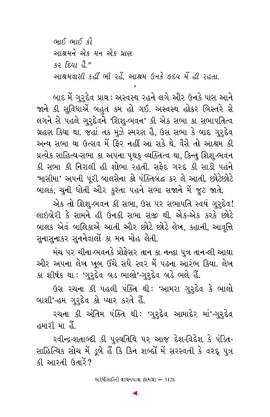 ભાઈ ભાઈ કો
આશ્રમને એક મન એક પ્રાણ
કર દિયા હૈ."
આશ્રમવાસી કહીં ભી રહેં. આશ્રમ ઉનકે હૃદય મેં હી રહતા.
*
બાદ મેં ગુરુદેવ પ્રાયઃ અસ્વસ્થ રહને લગે ઔર ઉનકે પાસ આને
જાને કી સુવિધાએં બહુત કમ હો ગઈ. અસ્વસ્થ હોકર બિસ્તરે સે
લગને સે પહલે ગુરુદેવને 'શિશુ-ભવન' કી એક સભા કા સભાપતિત્વ
ગ્રહણ કિયા થા. જહાં તક મુઝે સ્મરણ હૈ, ઉસ સભા કે બાદ ગુરુદેવ
અન્ય સભા યા ઉત્સવ મેં ફિર નહીં આ સકે થે. વૈસે તો આશ્રમ કી
પ્રત્યેક સાહિત્ય-સભા કા અપના પૃથક્ વ્યક્તિત્વ થા, કિન્તુ શિશુ-ભવન
કી સભા કી નિરાલી હી શોભા રહતી. સફેદ ગરદ કી સાડી પહને
'માસીમા' અપની પૂરી બાલસેના કો પંક્તિબદ્ધ કર લે આતી. છોટેછોટે
બાલક, ચુની ધોતી ઔર કુરતા પહને સભા સજાને મેં જૂટ જાતે.
એક તો શિશુ-ભવન કી સભા, ઉસ પર સભાપતિ સ્વયં ગુરુદેવ!
લાઇબ્રેરી કે સામને હી ઉનકી સભા સજી થી. એક-એક કરકે છોટે
બાલક એવં બાલિકાએં આતી ઔર છોટે છોટે લેખ, કહાની, આવૃત્તિ
સુનાસુનાકર સુનનેવાલોં કા મન મોહ લેતી.
મંચ પર ચીના-ભવનકે પ્રોફેસર તાન કા નન્હા પુત્ર તાન-લી આયા
ઔર અપના લેખ ખૂબ ઉંચે સધે સ્વર મેં પઢના આરંભ કિયા. લેખ
કા શીર્ષક થા : 'ગુરુદેવ બડ ભાલો'-ગુરુદેવ બડે ભલે હૈં.
ઉસ રચના કી પહલી પંક્તિ થી: 'આમરા ગુરુદેવ કે ભાલો
બાશી'-હમ ગુરુદેવ કો પ્યાર કરતે હૈં.
રચના કી અંતિમ પંક્તિ થી: 'ગુરુદેવ આમાદેર માં'-ગુરુદેવ
હમારી મા હૈં.
રવીન્દ્ર-શતાબ્દી કી પુણ્યતિથિ પર આજ દેશ-વિદેશ કે પંડિત-
સાહિત્યિક સોચ મેં ડૂબે હૈં કિ કિન શબ્દોં મેં સરસ્વતી કે વરદ્ પુત્ર
કી આરતી ઉતારેં?
3126